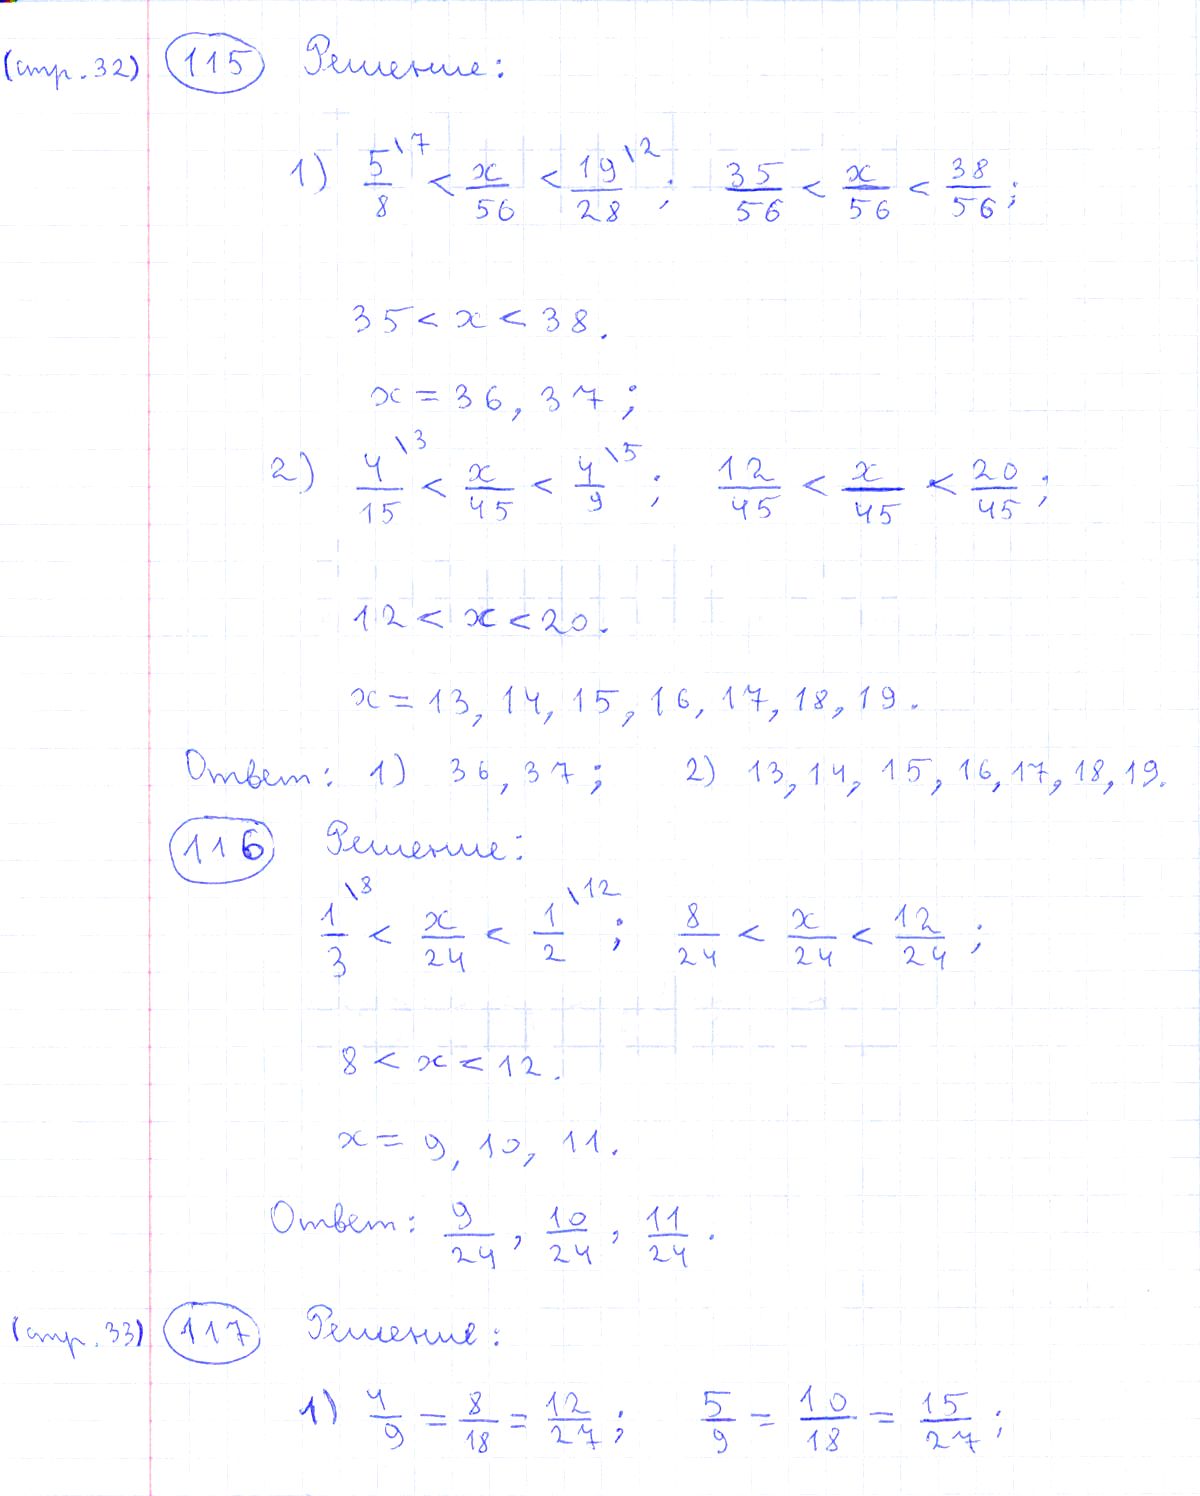 (стр. 32) 115 Решение:
1) 5/8 \7 < x/56 < 19/28 \2 ; 35/56 < x/56 < 38/56 ;
35 < x < 38.
x = 36, 37 ;
2) 4/15 \3 < x/45 < 4/9 \5 ; 12/45 < x/45 < 20/45 ;
12 < x < 20.
x = 13, 14, 15, 16, 17, 18, 19.
Ответ: 1) 36, 37 ; 2) 13, 14, 15, 16, 17, 18, 19.
116 Решение:
1/3 \8 < x/24 < 1/2 \12 ; 8/24 < x/24 < 12/24 ;
8 < x < 12.
x = 9, 10, 11.
Ответ: 9/24, 10/24, 11/24.
(стр. 33) 117 Решение:
1) 4/9 = 8/18 = 12/27 ; 5/9 = 10/18 = 15/27 ;